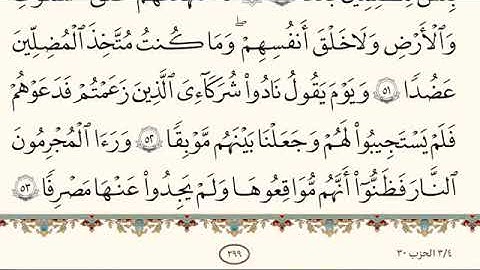 وَٱلْأَرْضِ وَلَا خَلْقَ أَنفُسِهِمْ ۖ وَمَا كُنتُ مُتَّخِذَ ٱلْمُضِلِّينَ
عَضُدًا ٥١ وَيَوْمَ يَقُولُ نَادُوا۟ شُرَكَآءِىَ ٱلَّذِينَ زَعَمْتُمْ فَدَعَوْهُمْ
فَلَمْ يَسْتَجِيبُوا۟ لَهُمْ وَجَعَلْنَا بَيْنَهُم مَّوْبِقًا ٥٢ وَرَءَا ٱلْمُجْرِمُونَ
ٱلنَّارَ فَظَنُّوٓا۟ أَنَّهُم مُّوَاقِعُوهَا وَلَمْ يَجِدُوا۟ عَنْهَا مَصْرِفًا ٥٣
٣/٤ الحزب ٣٠
٢٩٩